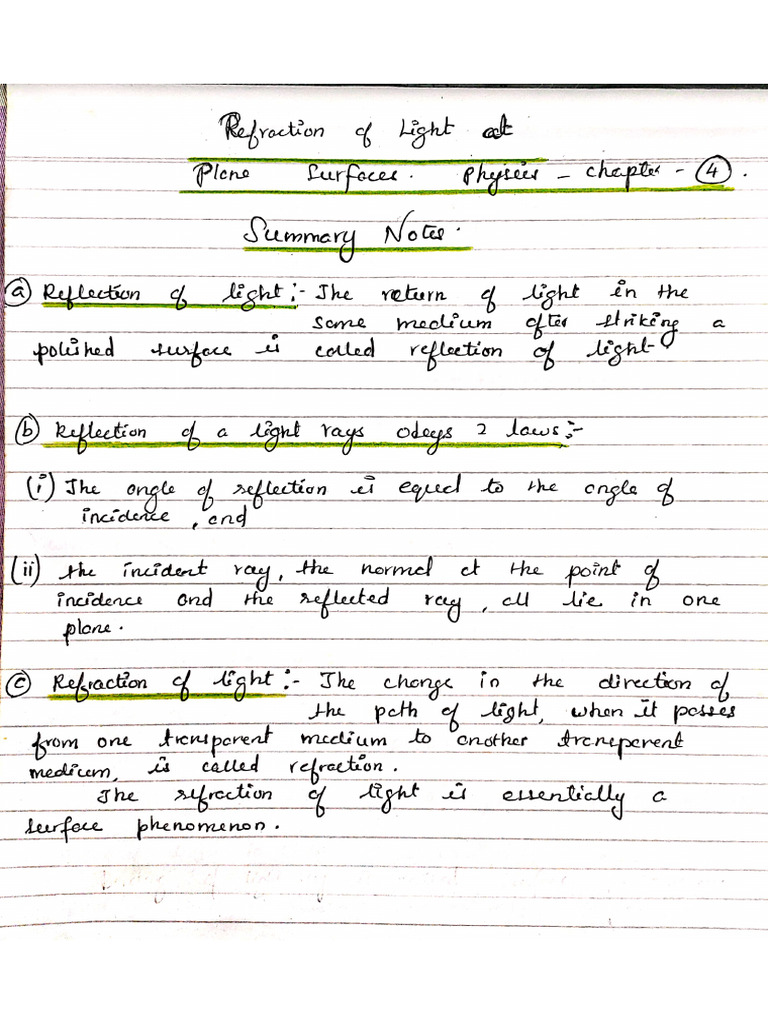 Refraction of Light at
Plane Surfaces. Physics - Chapter - 4.
Summary Notes.
a) Reflection of light :- The return of light in the
same medium after striking a
polished surface is called reflection of light.
b) Reflection of a light rays obeys 2 laws :-
(i) The angle of reflection is equal to the angle of
incidence, and
(ii) the incident ray, the normal at the point of
incidence and the reflected ray, all lie in one
plane.
c) Refraction of light :- The change in the direction of
the path of light, when it passes
from one transparent medium to another transparent
medium, is called refraction.
The refraction of light is essentially a
surface phenomenon.